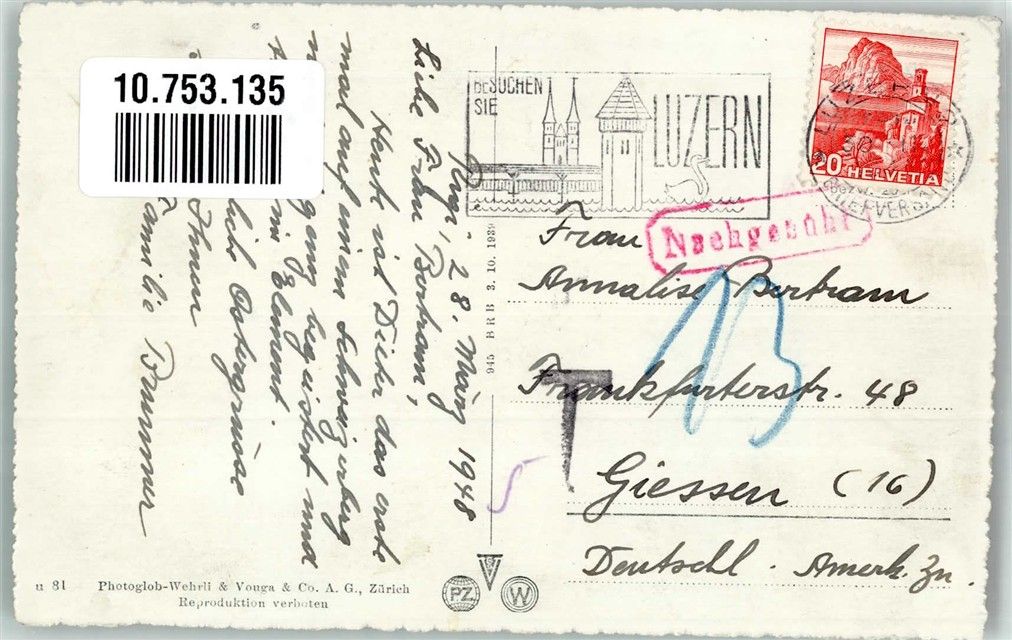 10.753.135
Rigi, 28. März 1948
Liebe Frau Bertram,
Heute ist Dieter das erste
mal auf einem
begeistert und
Element
Ostergrüsse
Ihnen
Familie Brunner
u 81
Photoglob-Wehrli & Vouga & Co. A. G., Zürich
Reproduktion verboten
945 BRB 3. 10. 1939
PZ
V
W
BESUCHEN
SIE
LUZERN
20 HELVETIA
LUZERN
BRIEFVERSAND
Nachgebühr
T
13
5
Frau
Annalise Bertram
Frankfurterstr. 48
Giessen (16)
Deutschl. Amerk. Zn.